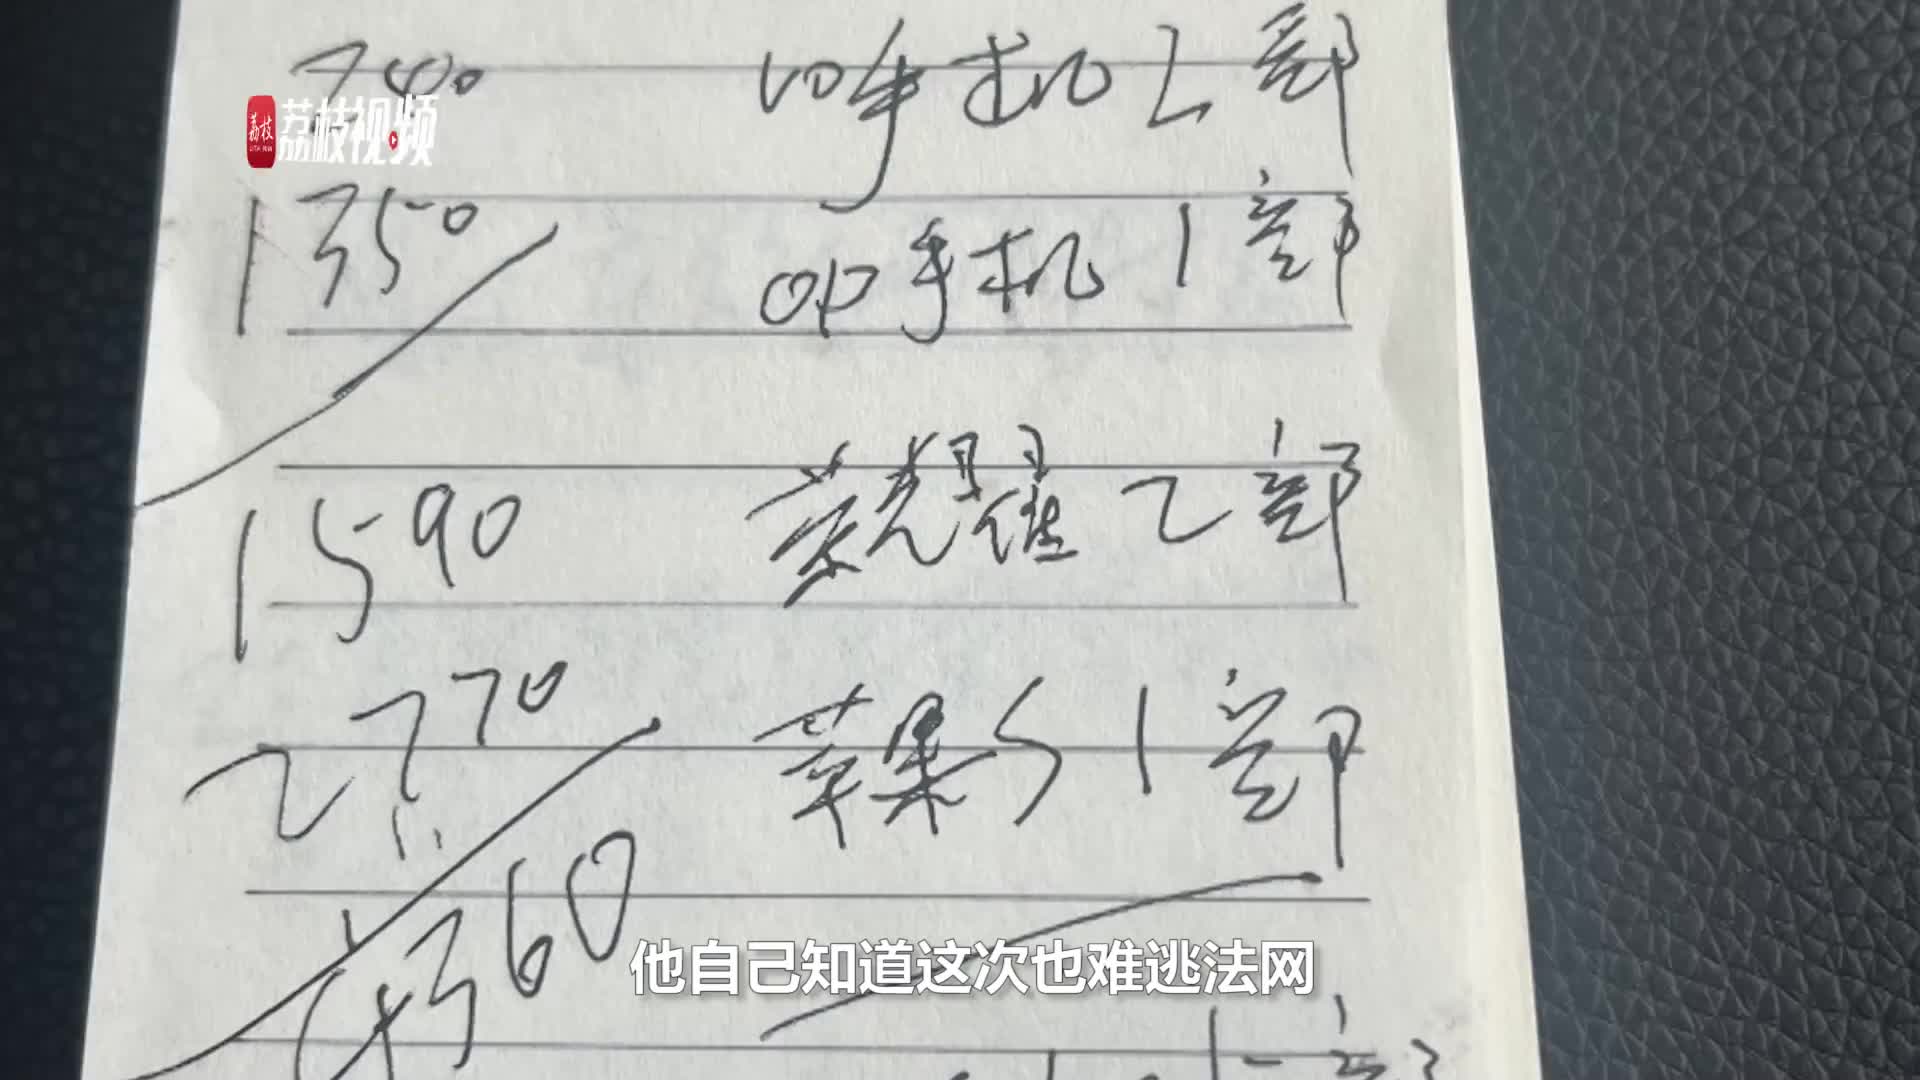 740 VO手机2部
荔枝 荔枝视频
1350 OP手机1部
1590 荣耀2部
2770 苹果S1部
360
他自己知道这次也难逃法网